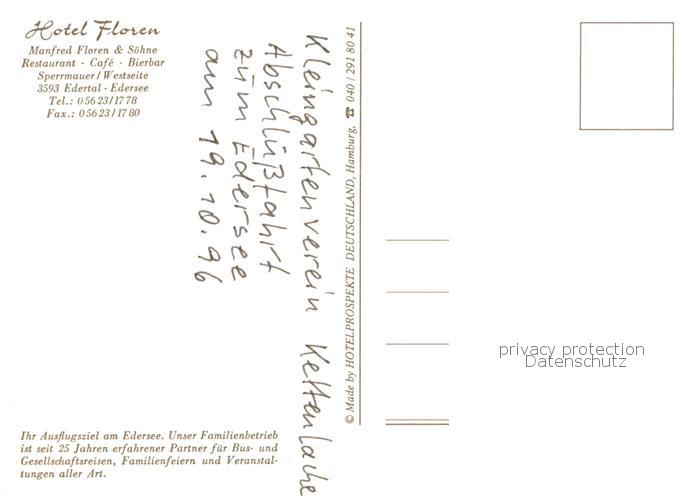 Hotel Floren
Manfred Floren & Söhne
Restaurant - Café - Bierbar
Sperrmauer/Westseite
3593 Edertal - Edersee
Tel.: 05623/1778
Fax.: 05623/1780
Kleingartenverein Kettenlache
Abschlüßfahrt
züm Edersee
am 19.10.96
© Made by HOTELPROSPEKTE DEUTSCHLAND, Hamburg, ☎ 040/291 80 41
Ihr Ausflugsziel am Edersee. Unser Familienbetrieb
ist seit 25 Jahren erfahrener Partner für Bus- und
Gesellschaftsreisen, Familienfeiern und Veranstal-
tungen aller Art.
privacy protection
Datenschutz